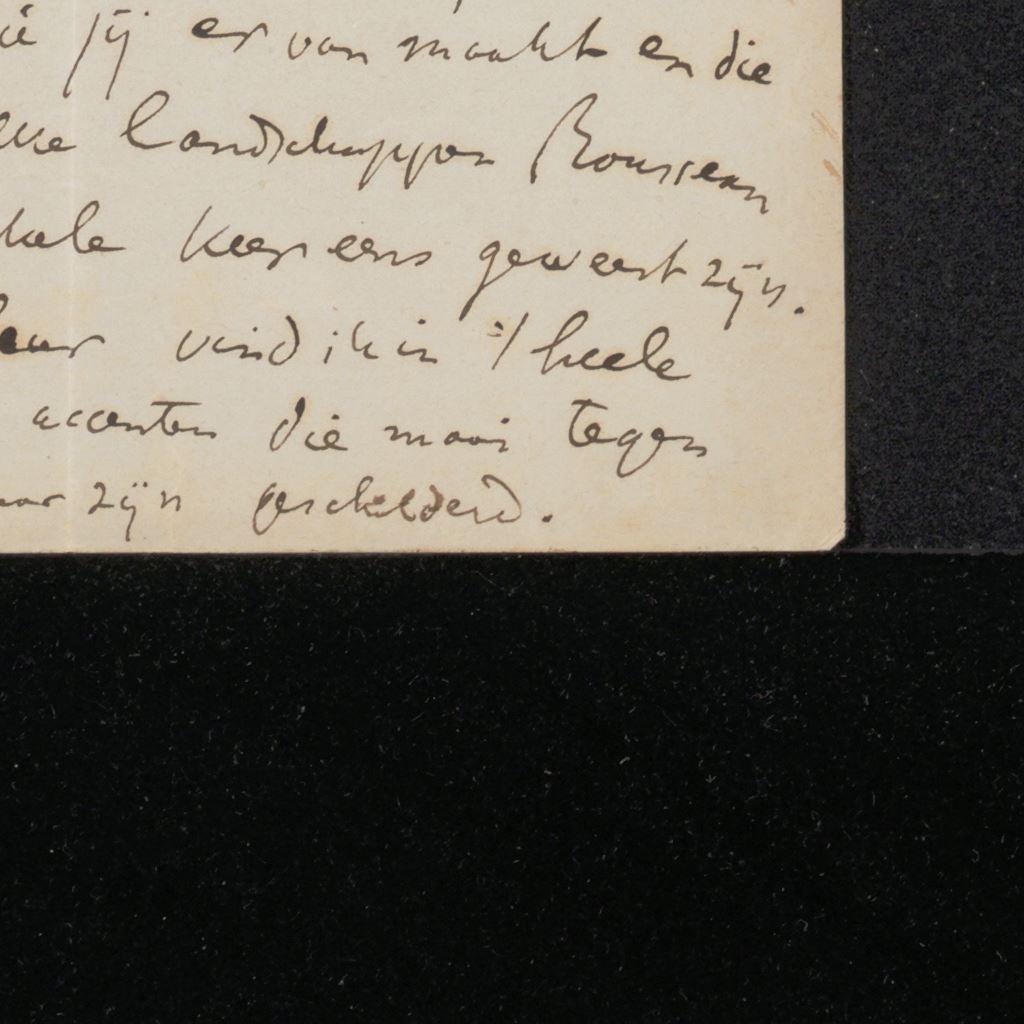 die jij er van maakt en die
landschappen Rousseau
enkele keer eens geweest zijn.
vind ik in 't heele
accenten die mooi tegen
zijn geschilderd.